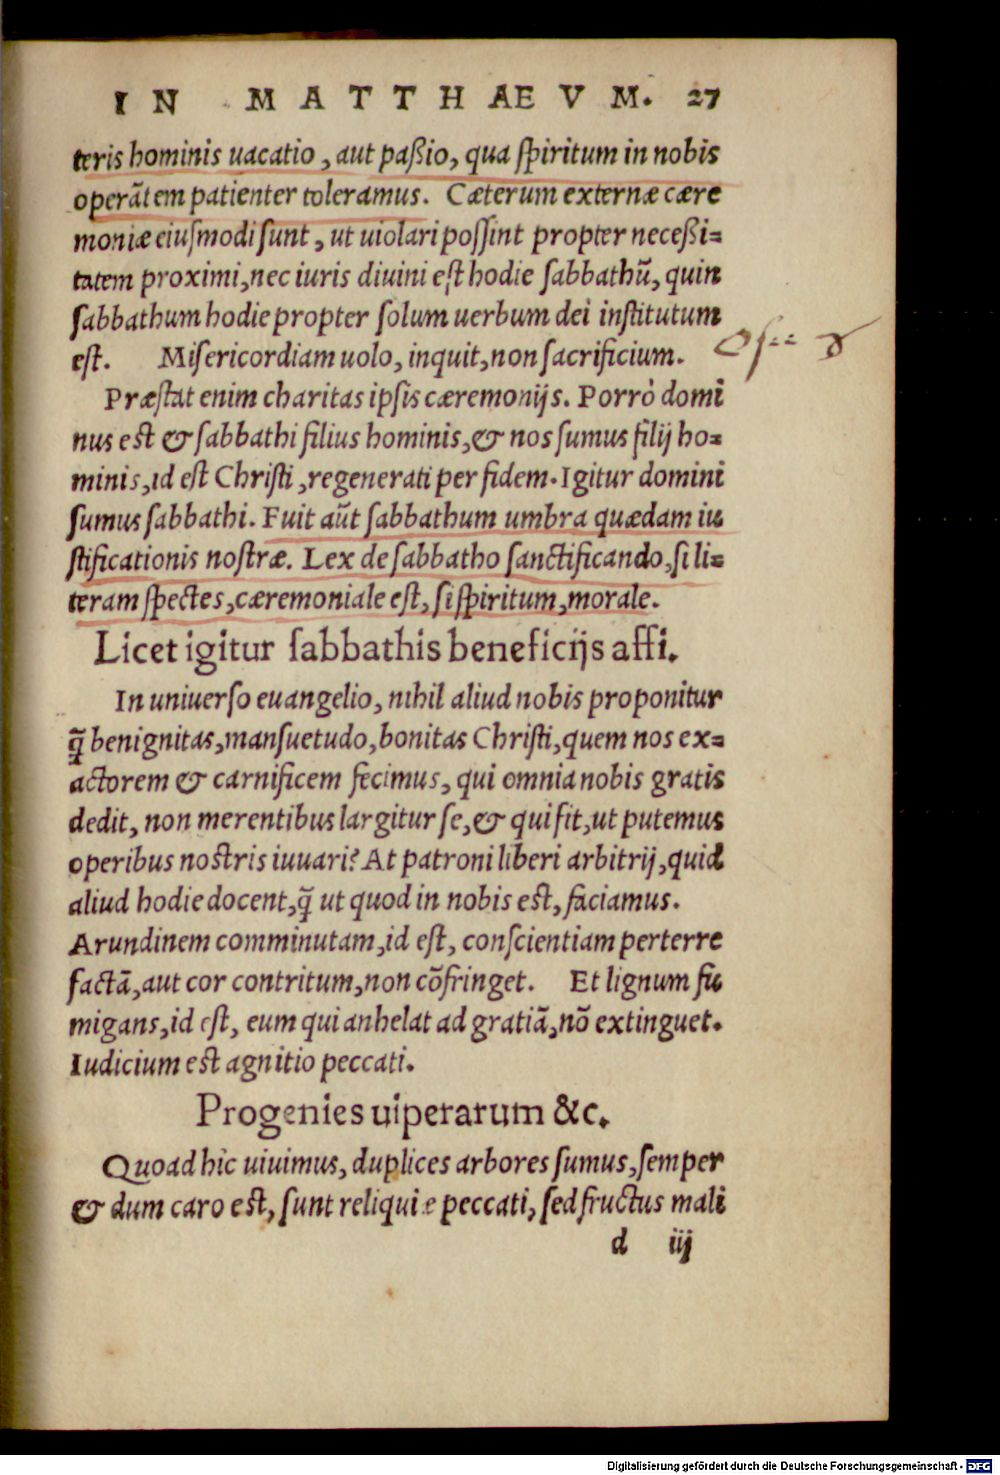 IN MATTHAEVM. 27
teris hominis uacatio, aut paßio, qua ſpiritum in nobis
operãtem patienter toleramus. Cæterum externæ cære
moniæ eiuſmodi ſunt, ut uiolari poſſint propter neceßi=
tatem proximi, nec iuris diuini eſt hodie ſabbathũ, quin
ſabbathum hodie propter ſolum uerbum dei inſtitutum
eſt. Miſericordiam uolo, inquit, non ſacrificium.
Præſtat enim charitas ipſis cæremonijs. Porrò domi
nus eſt & ſabbathi filius hominis, & nos ſumus filij ho=
minis, id eſt Chriſti, regenerati per fidem. Igitur domini
ſumus ſabbathi. Fuit aũt ſabbathum umbra quædam iu
ſtificationis noſtræ. Lex de ſabbatho ſanctificando, ſi li=
teram ſpectes, cæremoniale eſt, ſi ſpiritum, morale.
Licet igitur ſabbathis beneficijs affi.
In uniuerſo euangelio, nihil aliud nobis proponitur
q̃ benignitas, manſuetudo, bonitas Chriſti, quem nos ex=
actorem & carnificem fecimus, qui omnia nobis gratis
dedit, non merentibus largitur ſe, & qui fit, ut putemus
operibus noſtris iuuari? At patroni liberi arbitrij, quid
aliud hodie docent, q̃ ut quod in nobis eſt, faciamus.
Arundinem comminutam, id eſt, conſcientiam perterre
factã, aut cor contritum, non cõfringet. Et lignum fu
migans, id eſt, eum qui anhelat ad gratiã, nõ extinguet.
Iudicium eſt agnitio peccati.
Progenies uiperarum &c.
Quoad hic uiuimus, duplices arbores ſumus, ſemper
& dum caro eſt, ſunt reliquiæ peccati, ſed fructus mali
d iij
Digitalisierung gefördert durch die Deutsche Forschungsgemeinschaft - DFG